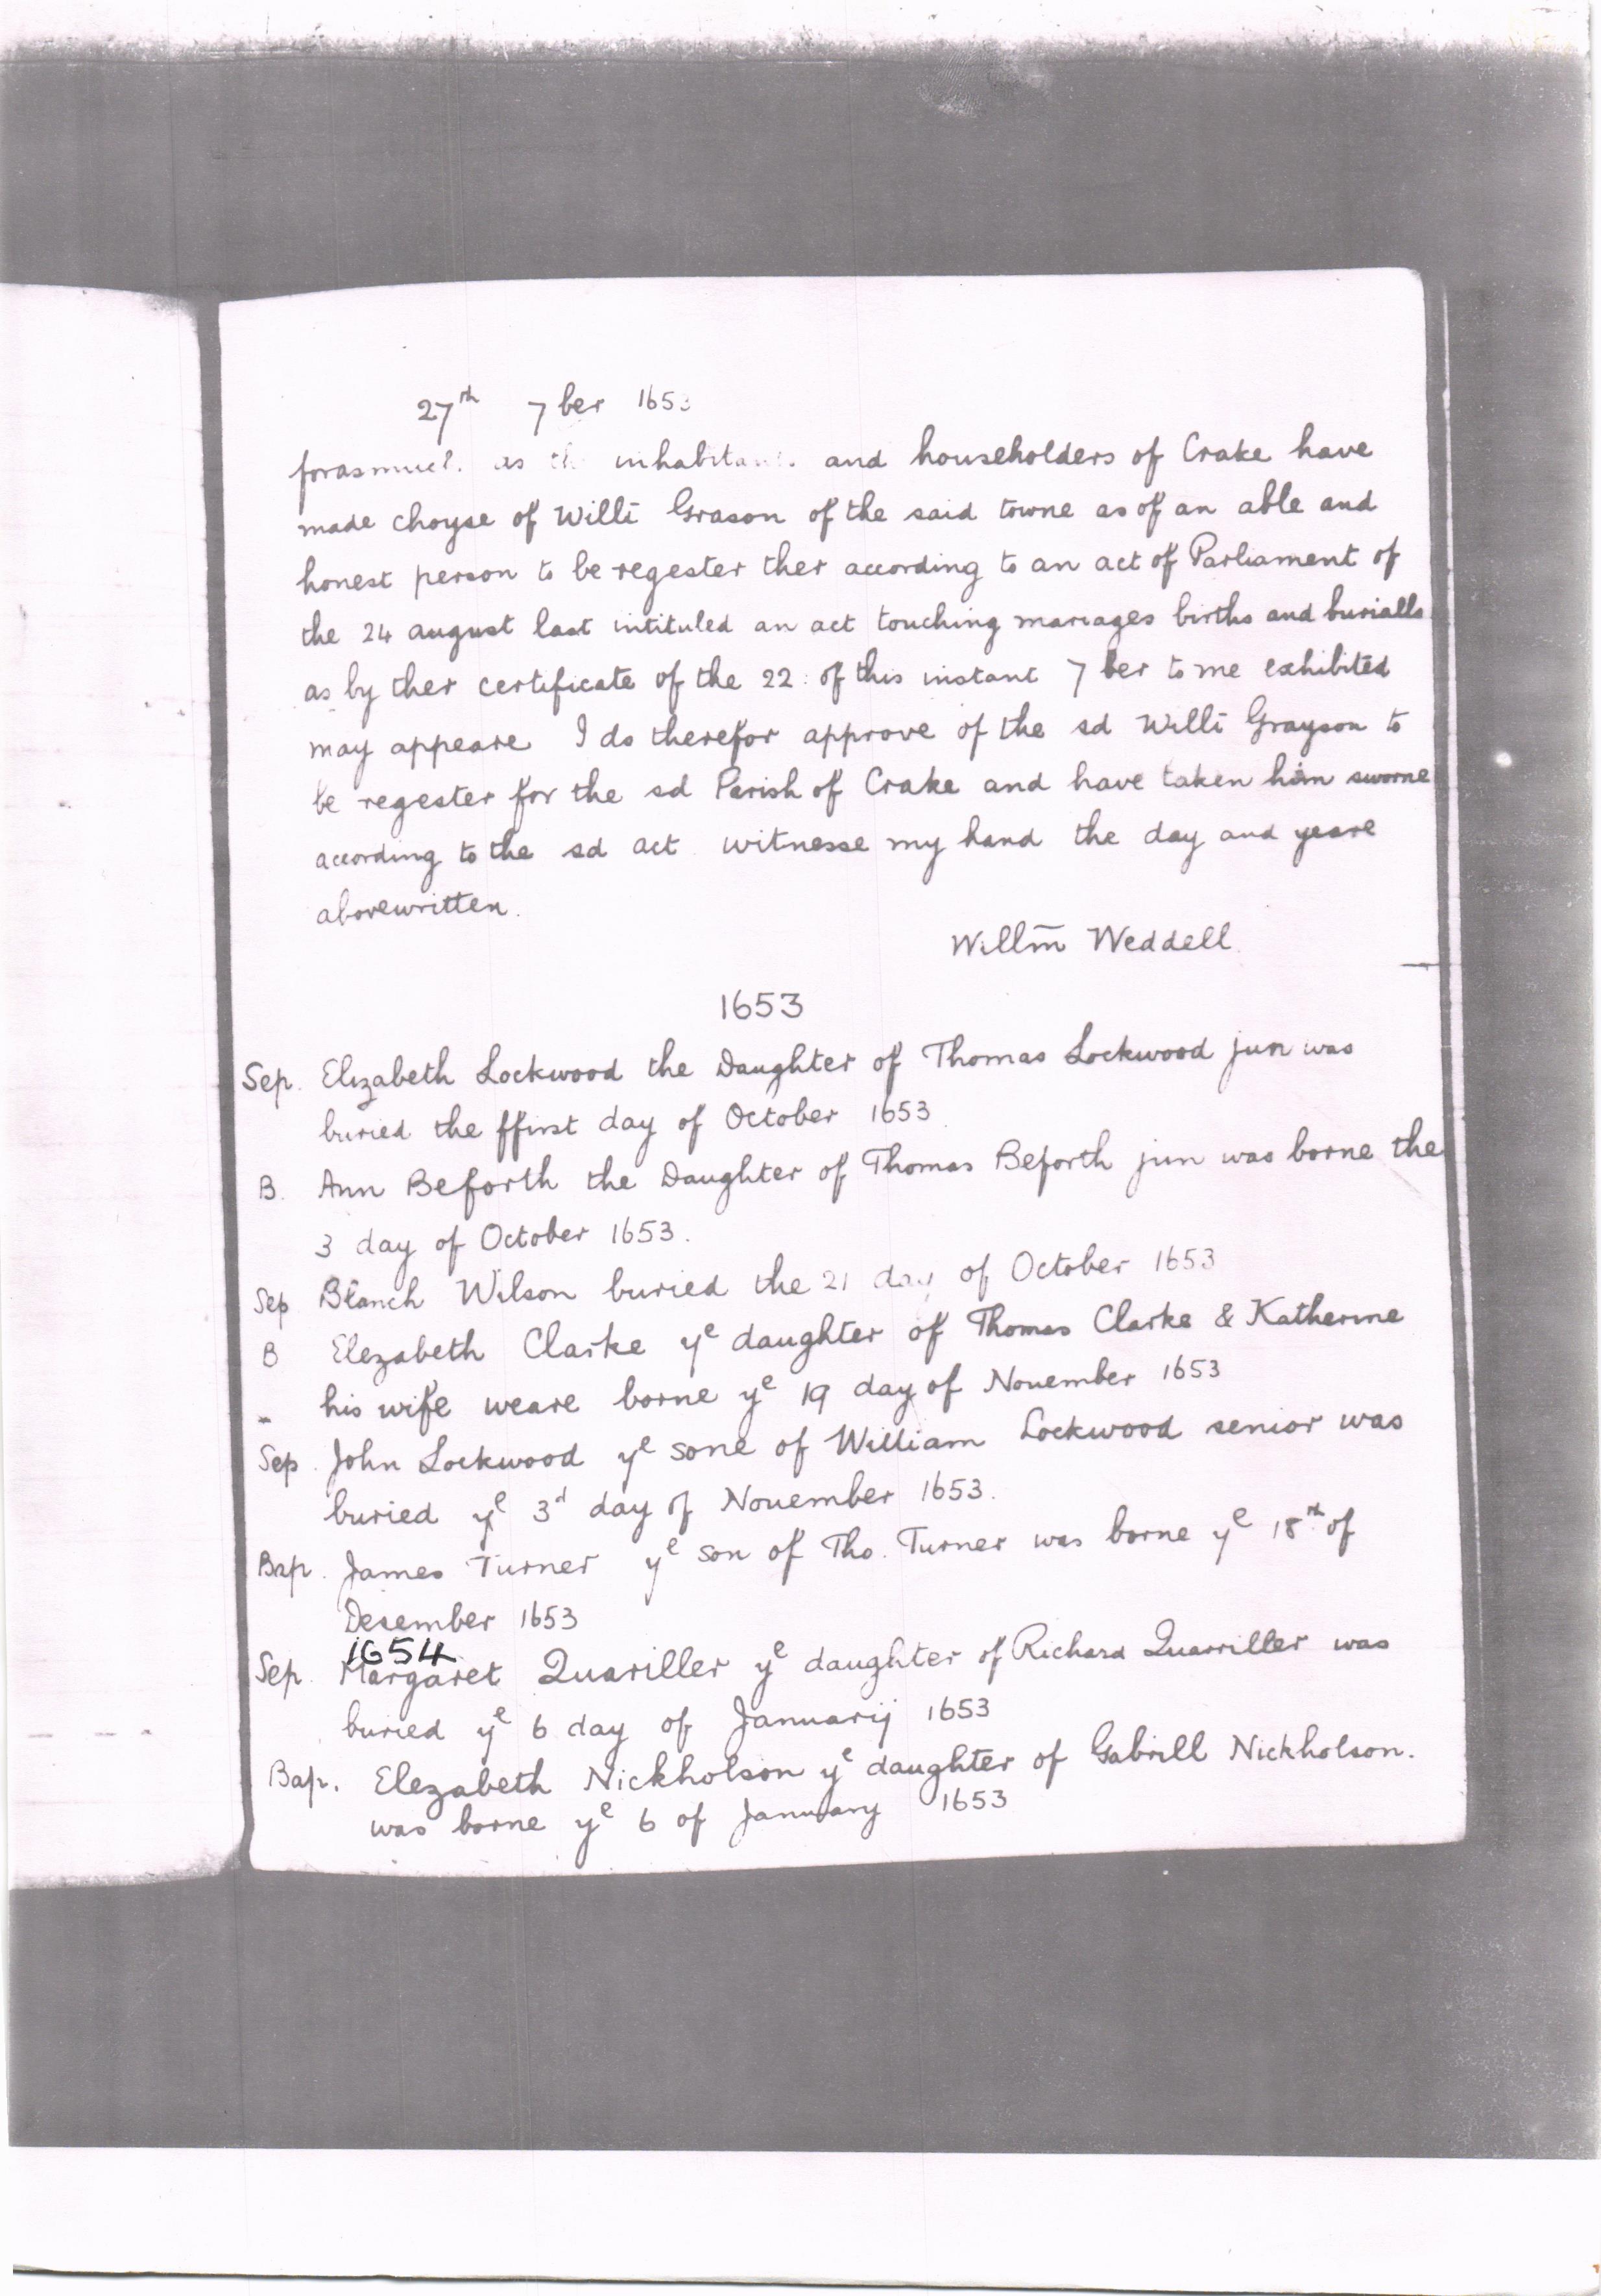 27th 7ber 1653
forasmuch as the inhabitants and householders of Crake have
made choyse of Willi Grason of the said towne as of an able and
honest person to be regester ther according to an act of Parliament of
the 24 august last intituled an act touching mariages births and burialls
as by ther certificate of the 22: of this instant 7ber to me exhibited
may appeare I do therefor approve of the sd Willi Grayson to
be regester for the sd Parish of Crake and have taken him sworne
according to the sd act witnesse my hand the day and yeare
abovewritten.
Willm̅ Weddell
1653
Sep. Elizabeth Lockwood the Daughter of Thomas Lockwood jun was
buried the ffirst day of October 1653.
B. Ann Beforth the Daughter of Thomas Beforth jun was borne the
3 day of October 1653.
Sep Blanch Wilson buried the 21 day of October 1653
B Elezabeth Clarke ye daughter of Thomas Clarke & Katherine
his wife weare borne ye 19 day of November 1653
Sep. John Lockwood ye sone of William Lockwood senior was
buried ye 3d day of November 1653.
Bap. James Turner ye son of Tho. Turner was borne ye 18th of
Desember 1653
1654
Sep. Margaret Quariller ye daughter of Richard Quarriller was
buried ye 6 day of Januarij 1653
Bap. Elezabeth Nickholson ye daughter of Gabrill Nickholson.
was borne ye 6 of January 1653